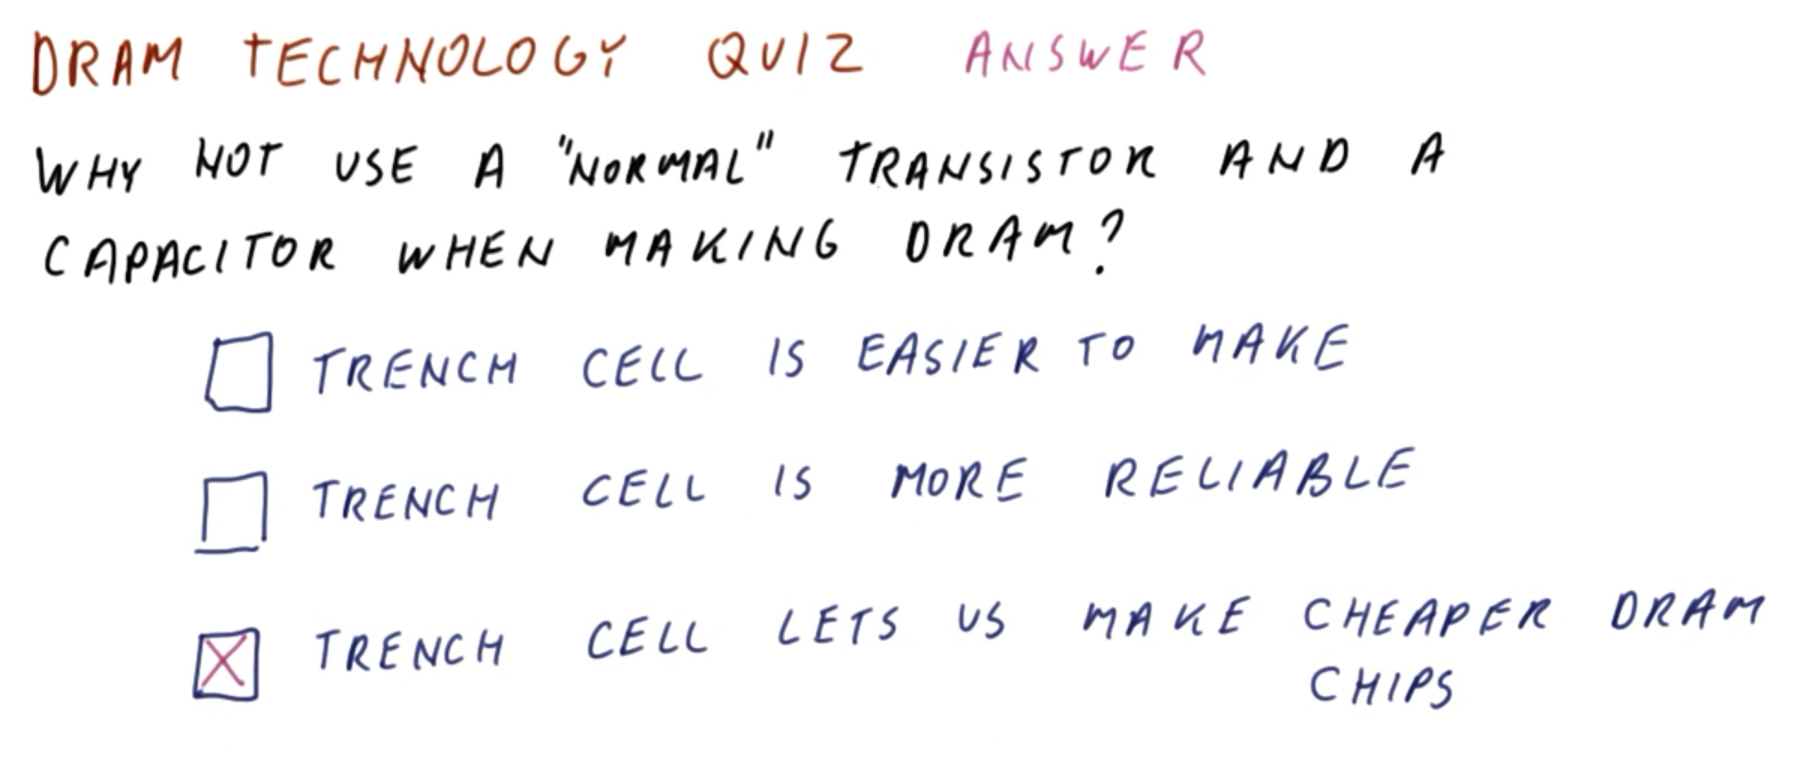 DRAM TECHNOLOGY QUIZ ANSWER
WHY NOT USE A "NORMAL" TRANSISTOR AND A
CAPACITOR WHEN MAKING DRAM?
TRENCH CELL IS EASIER TO MAKE
TRENCH CELL IS MORE RELIABLE
TRENCH CELL LETS US MAKE CHEAPER DRAM
CHIPS